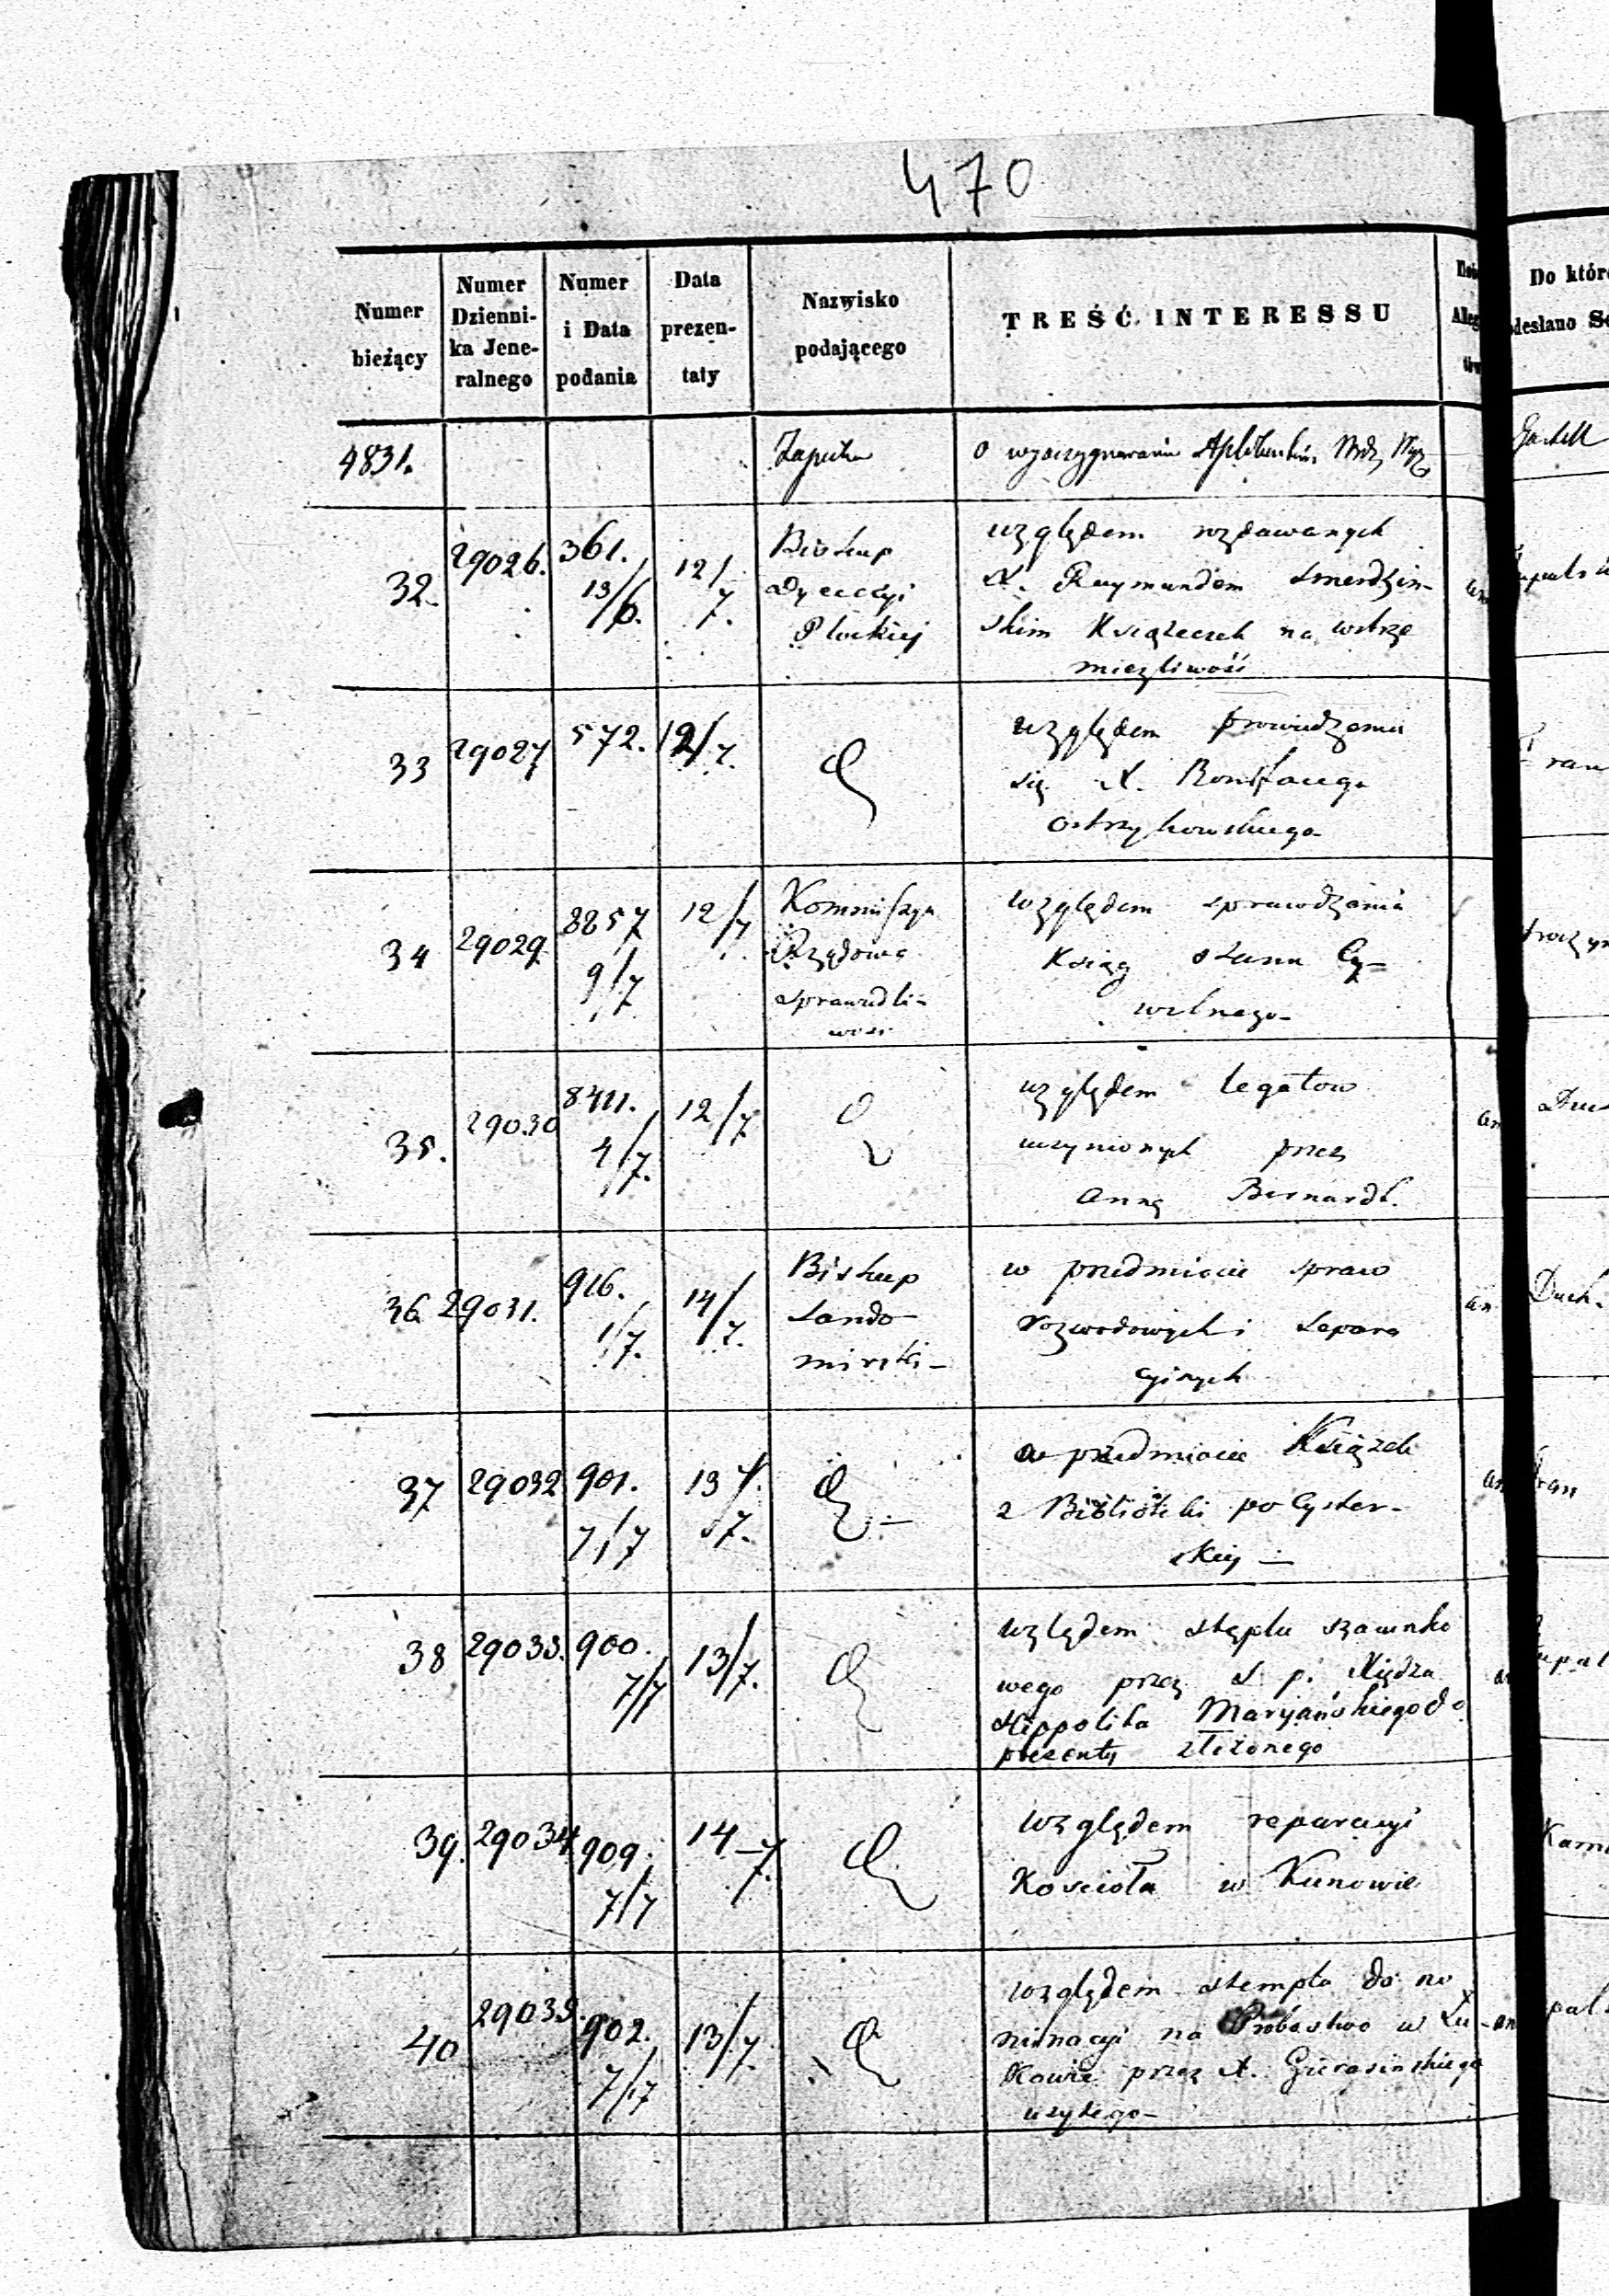 470
Numer bieżący
Numer Dzienni-
ka Jene-
ralnego
Numer
i Data
podania
Data
prezen-
taty
Nazwisko
podającego
TREŚĆ INTERESSU
Do które
odesłano
4831.
o
32. 29026. 361. 13/6. 12/7.
Biskup
Dyecezyi
Płockiej
względem rozdawanych
X. Raymundem Smerdzin-
skim Książeczek na wstrze
mięźliwość
33 29027 572. 12/7.
względem prowadzenia
się X. Bonifacego
Ostrzykowskiego
34 29029 8257 9/7 12/7
Kommissya
Rządowa
Sprawiedli-
wości
względem sprawdzania
Ksiąg stanu Cy-
wilnego
35. 29030 8411. 4/7. 12/7
względem legatow
uczynionych przez
Annę Bernardt.
36 29031. 916. 1/7. 14/7.
Biskup
Sando-
mirski
w przedmiocie spraw
rozwodowych i separa
cyjnych
an Duch.
37 29032 901. 7/7 13/7.
w przedmiocie Książek
z Biblioteki po Cyster-
skiej
38 29033. 900. 7/7 13/7.
względem stęplu szacunko
wego przez S. p. Xiędza
Hippolita Maryańskiego do
prezenty złożonego
39. 29034 909. 7/7 14/7.
względem reparacyi
Kościoła w Kunowie
40 29035. 902. 7/7 13/7.
względem stempla do no
minacyi na Probostwo w Łu-
kowie przez X. Gierasińskiego
użytego